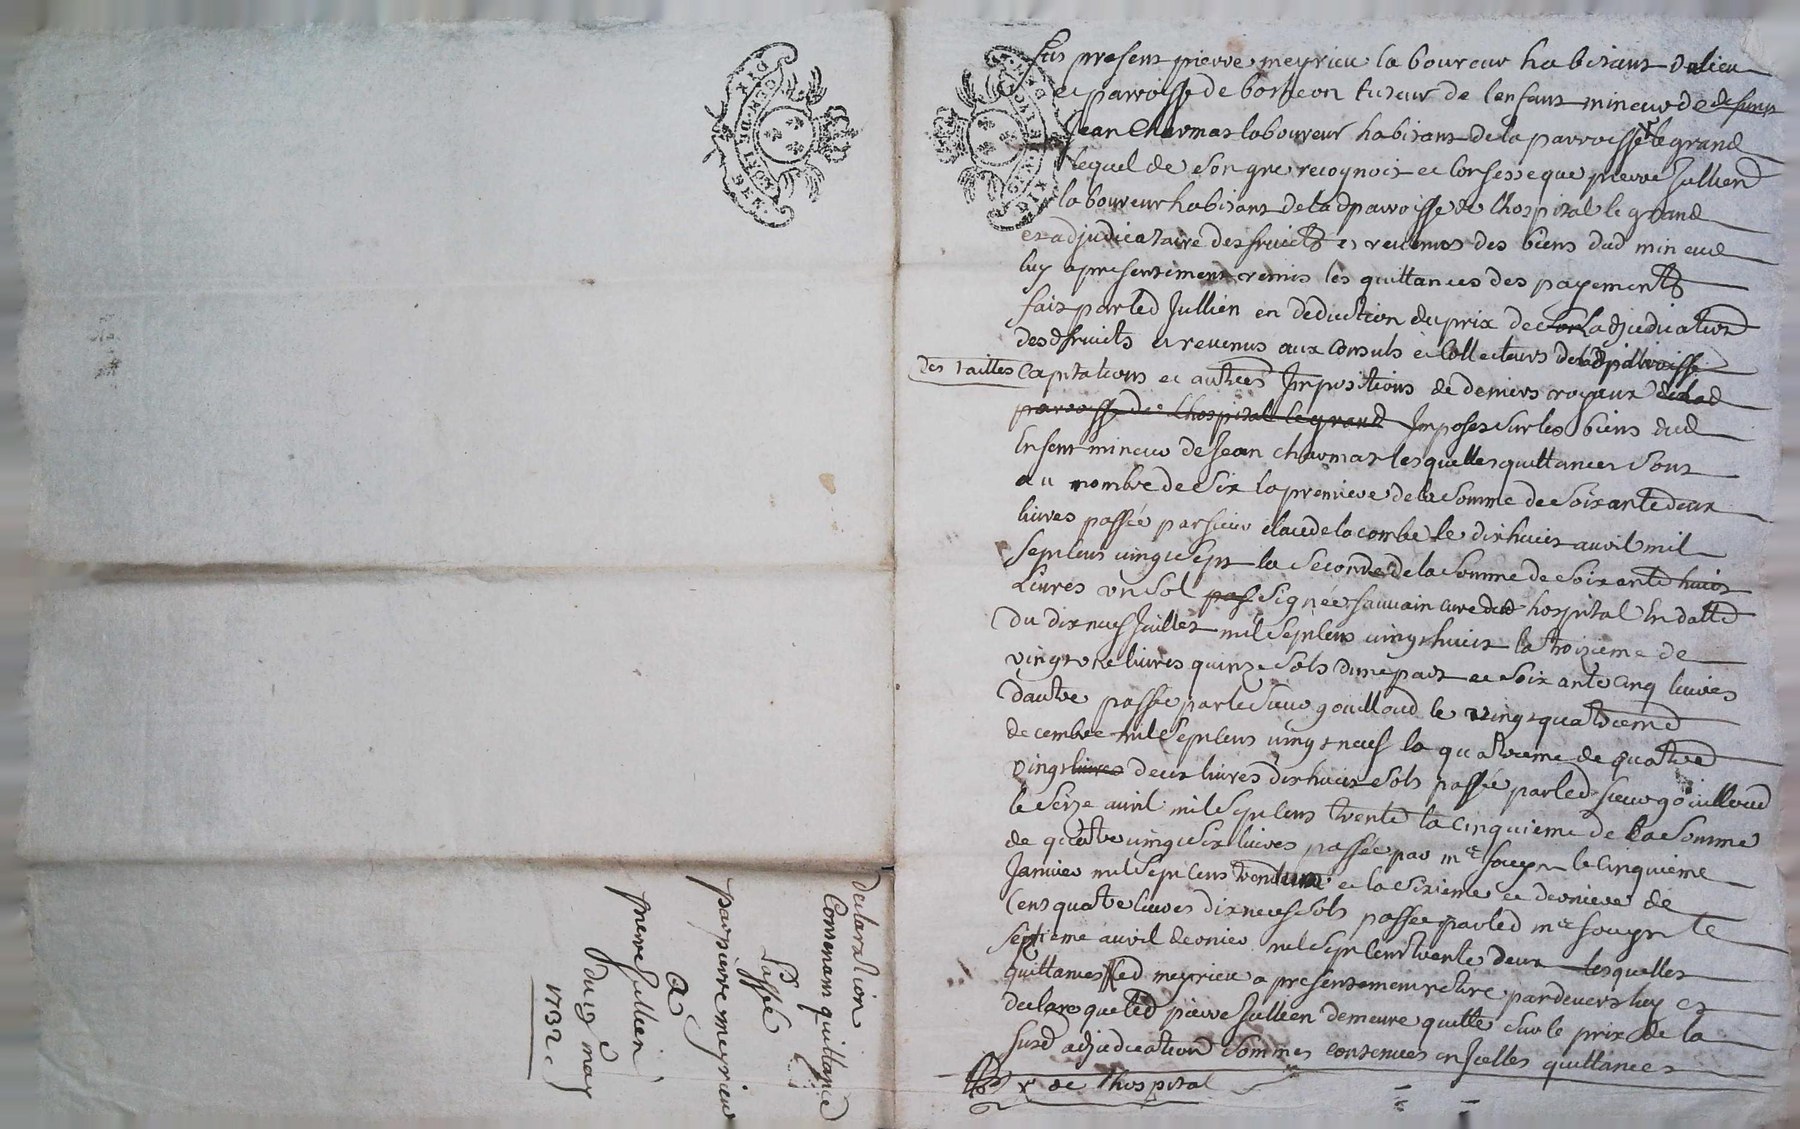 fut present pierre meyrieu laboureur habitant du lieu
et parroisse de bossieon tuteur de lenfant mineur de defunt
Jean Charmat laboureur habitant de la parroisse le grand
lequel de son gre recognoit et confesse que pierre Jullien
laboureur habitant de lad parroisse de lhospital le grand
et adjudicataire des fruicts et revenus des biens dud mineur
luy a presentement remis les quittances des payements
fait par led Jullien en deduction du prix de ladjudication
desd fruits et revenus aux consuls et collecteurs de lad parroisse
des tailles capitations et autres Impositions de deniers royaux de lad
parroisse de Lhospital le grand Imposes sur les biens dud
Enfant mineur de Jean charmat lesquelles quittances sont
au nombre de six la premiere de la somme de soixante deux
livres passée par sieur claude lacombe le dixhuit avril mil
sept cent vingt sept la seconde de la somme de soixante huit
Livres un sol pas signée sauvain curé dud hospital En datte
du dix neuf Juillet mil sept cent vingt huit la troizieme de
vingt une livres quinze sols dune part et soixante cinq livres
dautre passée par le sieur gouilloud le vingt quatrieme
decembre mil sept cent vingt neuf la quatrieme de quatre
vingt livres deux livres dixhuit sols passée par led sieur gouilloud
le seize avril mil sept cent trente la cinquieme de la somme
de quatre vingt six livres passée par me souyn le cinquieme
Janvier mil sept cent trente un et la sixieme et derniere de
cent quatre livres dix neuf sols passée par led me souyn le
septieme avril dernier mil sept cent trente deux lesquelles
quittances led meyrieu a presentement retiré pardevers luy et
declare que led pierre Jullien demeure quitte sur le prix de la
susd adjudication sommes contenues en Icelles quittances
de lhospital
declaration
Contenant quittance
Passée
par pierre meyrieu
a
pierre Jullien
Du 19e may
1732